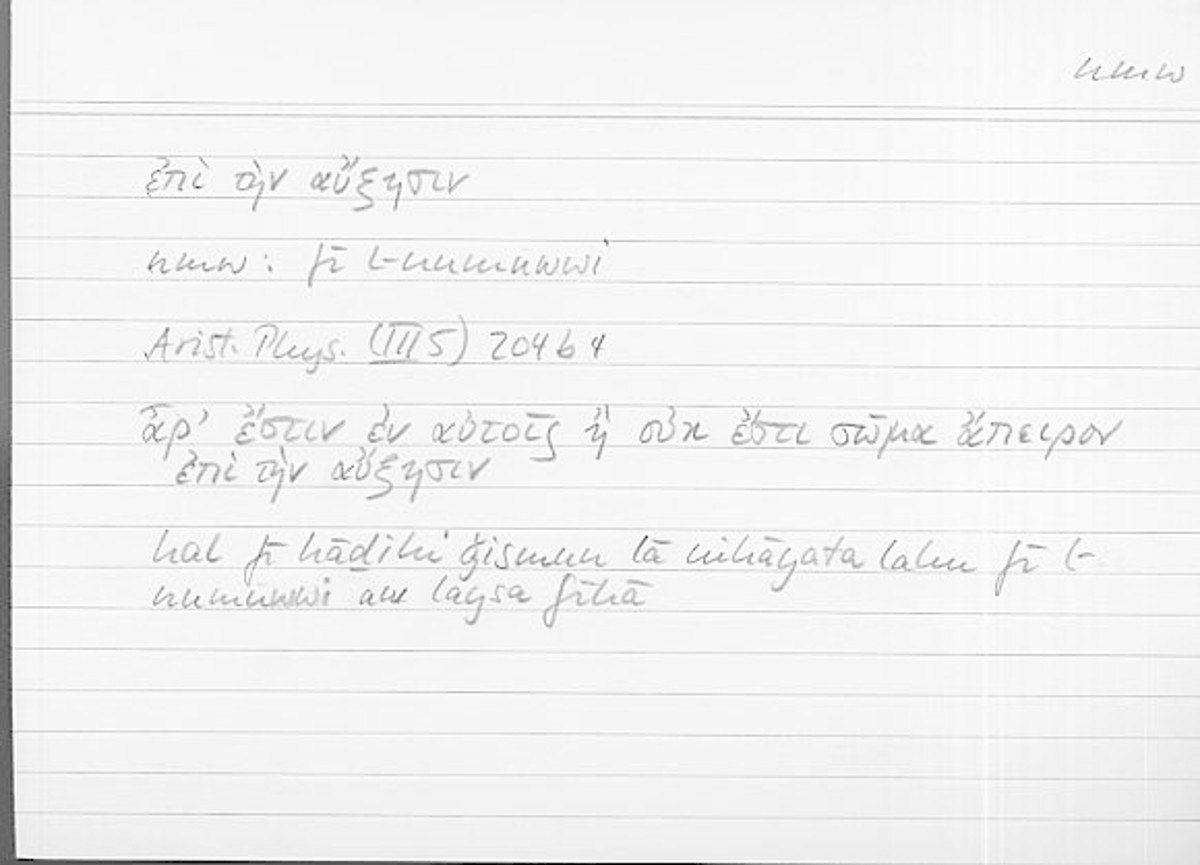 nmw
ἐπὶ τὴν αὔξησιν
nmw: fī l-numuwwi
Arist. Phys. (III 5) 204 b 4
ἆρ' ἔστιν ἐν αὐτοῖς ἢ οὐκ ἔστι σῶμα ἄπειρον
ἐπὶ τὴν αὔξησιν
hal fī hāḏihi ǧismun lā nihāyata lahu fī l-
numuwwi am laysa fīhā